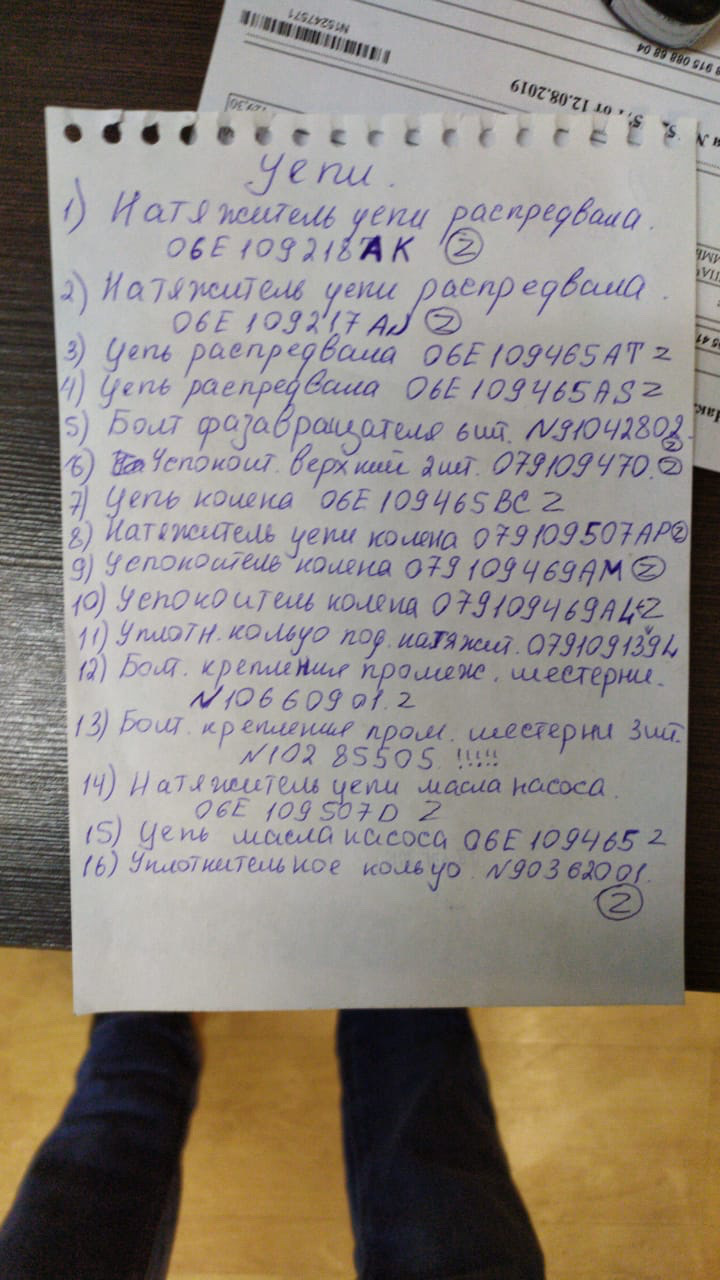 N15247571
915 088 68 04
от 12.08.2019
129,30
Цепи.
1) Натяжитель цепи распредвала.
06E109218 AK Z
2) Натяжитель цепи распредвала.
06E 109217 Z
3) Цепь распредвала 06E109465AT Z
4) Цепь распредвала 06E109465AS Z
5) Болт фазавращателя 6шт. N91042802.
Z
6) Успокоит. верхний 2шт. 079109470. Z
7) Цепь колена 06E109465BC Z
8) Натяжитель цепи колена 079109507AP Z
9) Успокоитель колена 079109469AM Z
10) Успокоитель колена 079109469AL Z
11) Уплотн. кольцо под. натяжит.
12) Болт. крепления промеж. шестерни.
N10660901. Z
13) Болт. крепления пром. шестерни 3шт.
N10285505 !!!!!
14) Натяжитель цепи масла насоса.
06E 109507D Z
15) Цепь масла насоса 06E109465 Z
16) Уплотнительное кольцо. N90362001.
Z